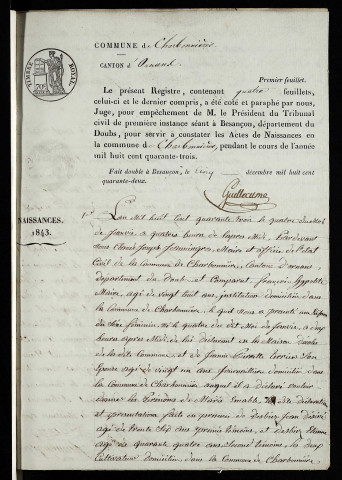 COMMUNE de Charbonnières
CANTON d'Ornans
TIMBRE ROYAL
Premier feuillet.
Le présent Registre, contenant quatre feuillets,
celui-ci et le dernier compris, a été coté et paraphé par nous,
Juge, pour empêchement de M. le Président du Tribunal
civil de première instance séant à Besançon, département du
Doubs, pour servir à constater les Actes de Naissances en
la commune de Charbonnières, pendant le cours de l'année
mil huit cent quarante-trois.
Fait double à Besançon, le cinq décembre mil huit cent
quarante-deux.
Guillecume
NAISSANCES.
1843.
L'an Mil huit Cent quarante trois le quatre du Mois
de Janvié a quatre heure de lapres Midi, Pardevant
nous Joseph Maire et officier de l'etat
Civil de la Commune de Charbonnière, Canton d'ornans
departement du Doub est Comparut francois hyppolite
Maire agé de vingt huit ans, institituteur domicilier dans
la Commune de Charbonnière. le quel nous a presenté un
du Sexe feminin né le quatre du dit Mois de Janvié, a
heures apres Midi de lui declarant en la Maison
de la dite Commune et de Jeanne Pierrette Son
Epouse agé de vingt un ans domicilier dans
la Commune de Charbonnière auquel il a déclaré vouloir
donner les Prénoms de Marie la dite déclaration
et presentation faite en presence de Jean désiré
agé de trente Six ans premie temoins, et
agé de quarante quatre ans Second temoins les deux
Cultivateur domicilier dans la Commune de Charbonnière.